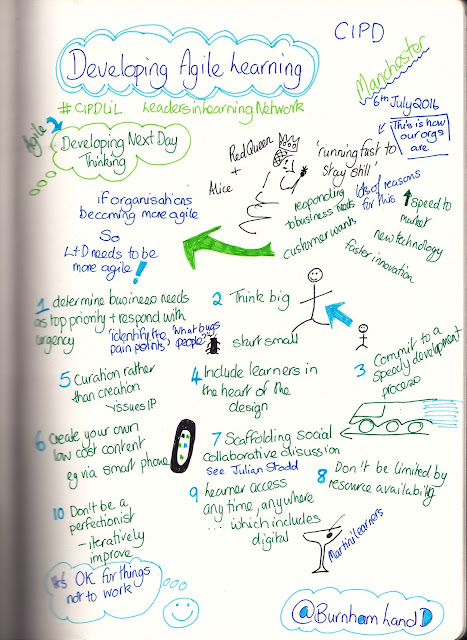 CIPD
Developing Agile Learning
Manchester
6th July 2016
#CIPDLiL Leaders in Learning Network
Agile?
Developing Next Day
Thinking
Red Queen
+
Alice
'running fast to
stay still'
This is how
our orgs
are
if organisations
becoming more agile
So
L+D needs to be
more agile!
responding
to business needs
customer wants
lots of reasons
for this
speed to
market
new technology
faster innovation
1 determine business needs
as top priority + respond with
urgency
'identify the
pain points'
'what bugs
people'
2 Think big
start small
3 Commit to a
speedy development
process
4 Include learners in
the heart of the
design
5 Curation rather
than creation
issues IP
6 Create your own
low cost content
eg via smart phone
7 Scaffolding social
collaborative disussion
See Julian Stodd
8 Don't be limited by
resource availability
9 Learner access
any time, anywhere
... which includes
digital
Martini learners
10 Don't be a
perfectionist
- iteratively
improve
It's OK for things
not to work
@BurnhamLandD